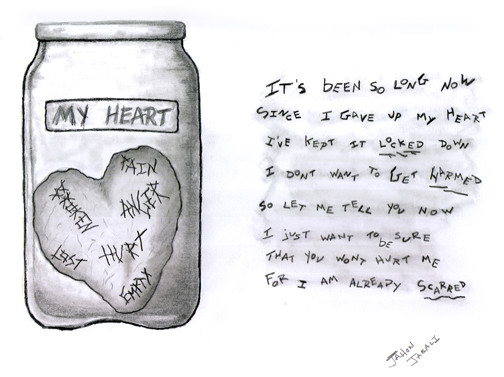 MY HEART
PAIN
BROKEN
ANGER
HURT
LOST
EMPTY
IT'S BEEN SO LONG NOW
SINCE I GAVE UP MY HEART
I'VE KEPT IT LOCKED DOWN
I DONT WANT TO GET HARMED
SO LET ME TELL YOU NOW
I JUST WANT TO BE SURE
THAT YOU WONT HURT ME
FOR I AM ALREADY SCARRED
JAHON